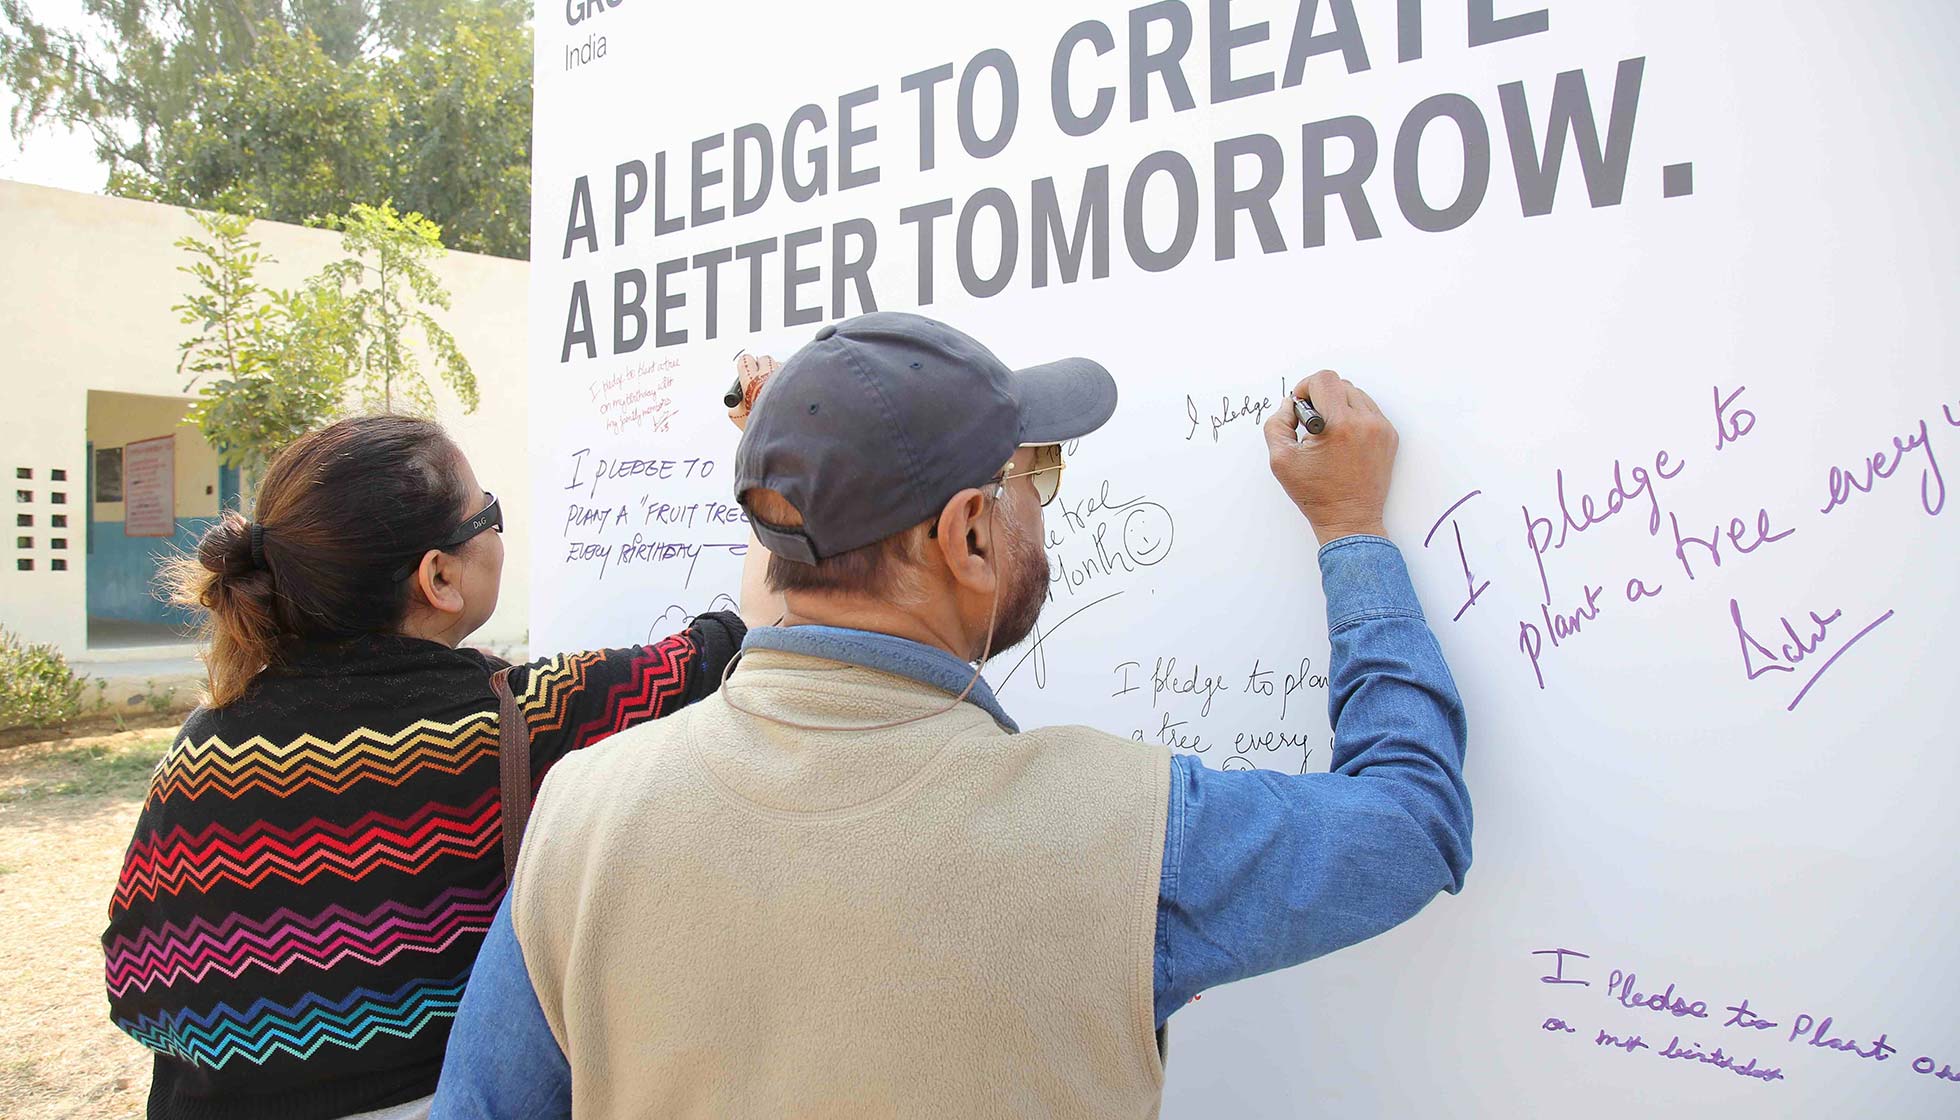 India
A PLEDGE TO CREATE
A BETTER TOMORROW.
I pledge to plant a tree
on my birthday with
my family members
I PLEDGE TO
PLANT A "FRUIT TREE
EVERY BIRTHDAY
tree
Month
I pledge
I pledge to plan
a tree every
I pledge to
plant a tree every
I Pledge to Plant
on my birthday
D&G